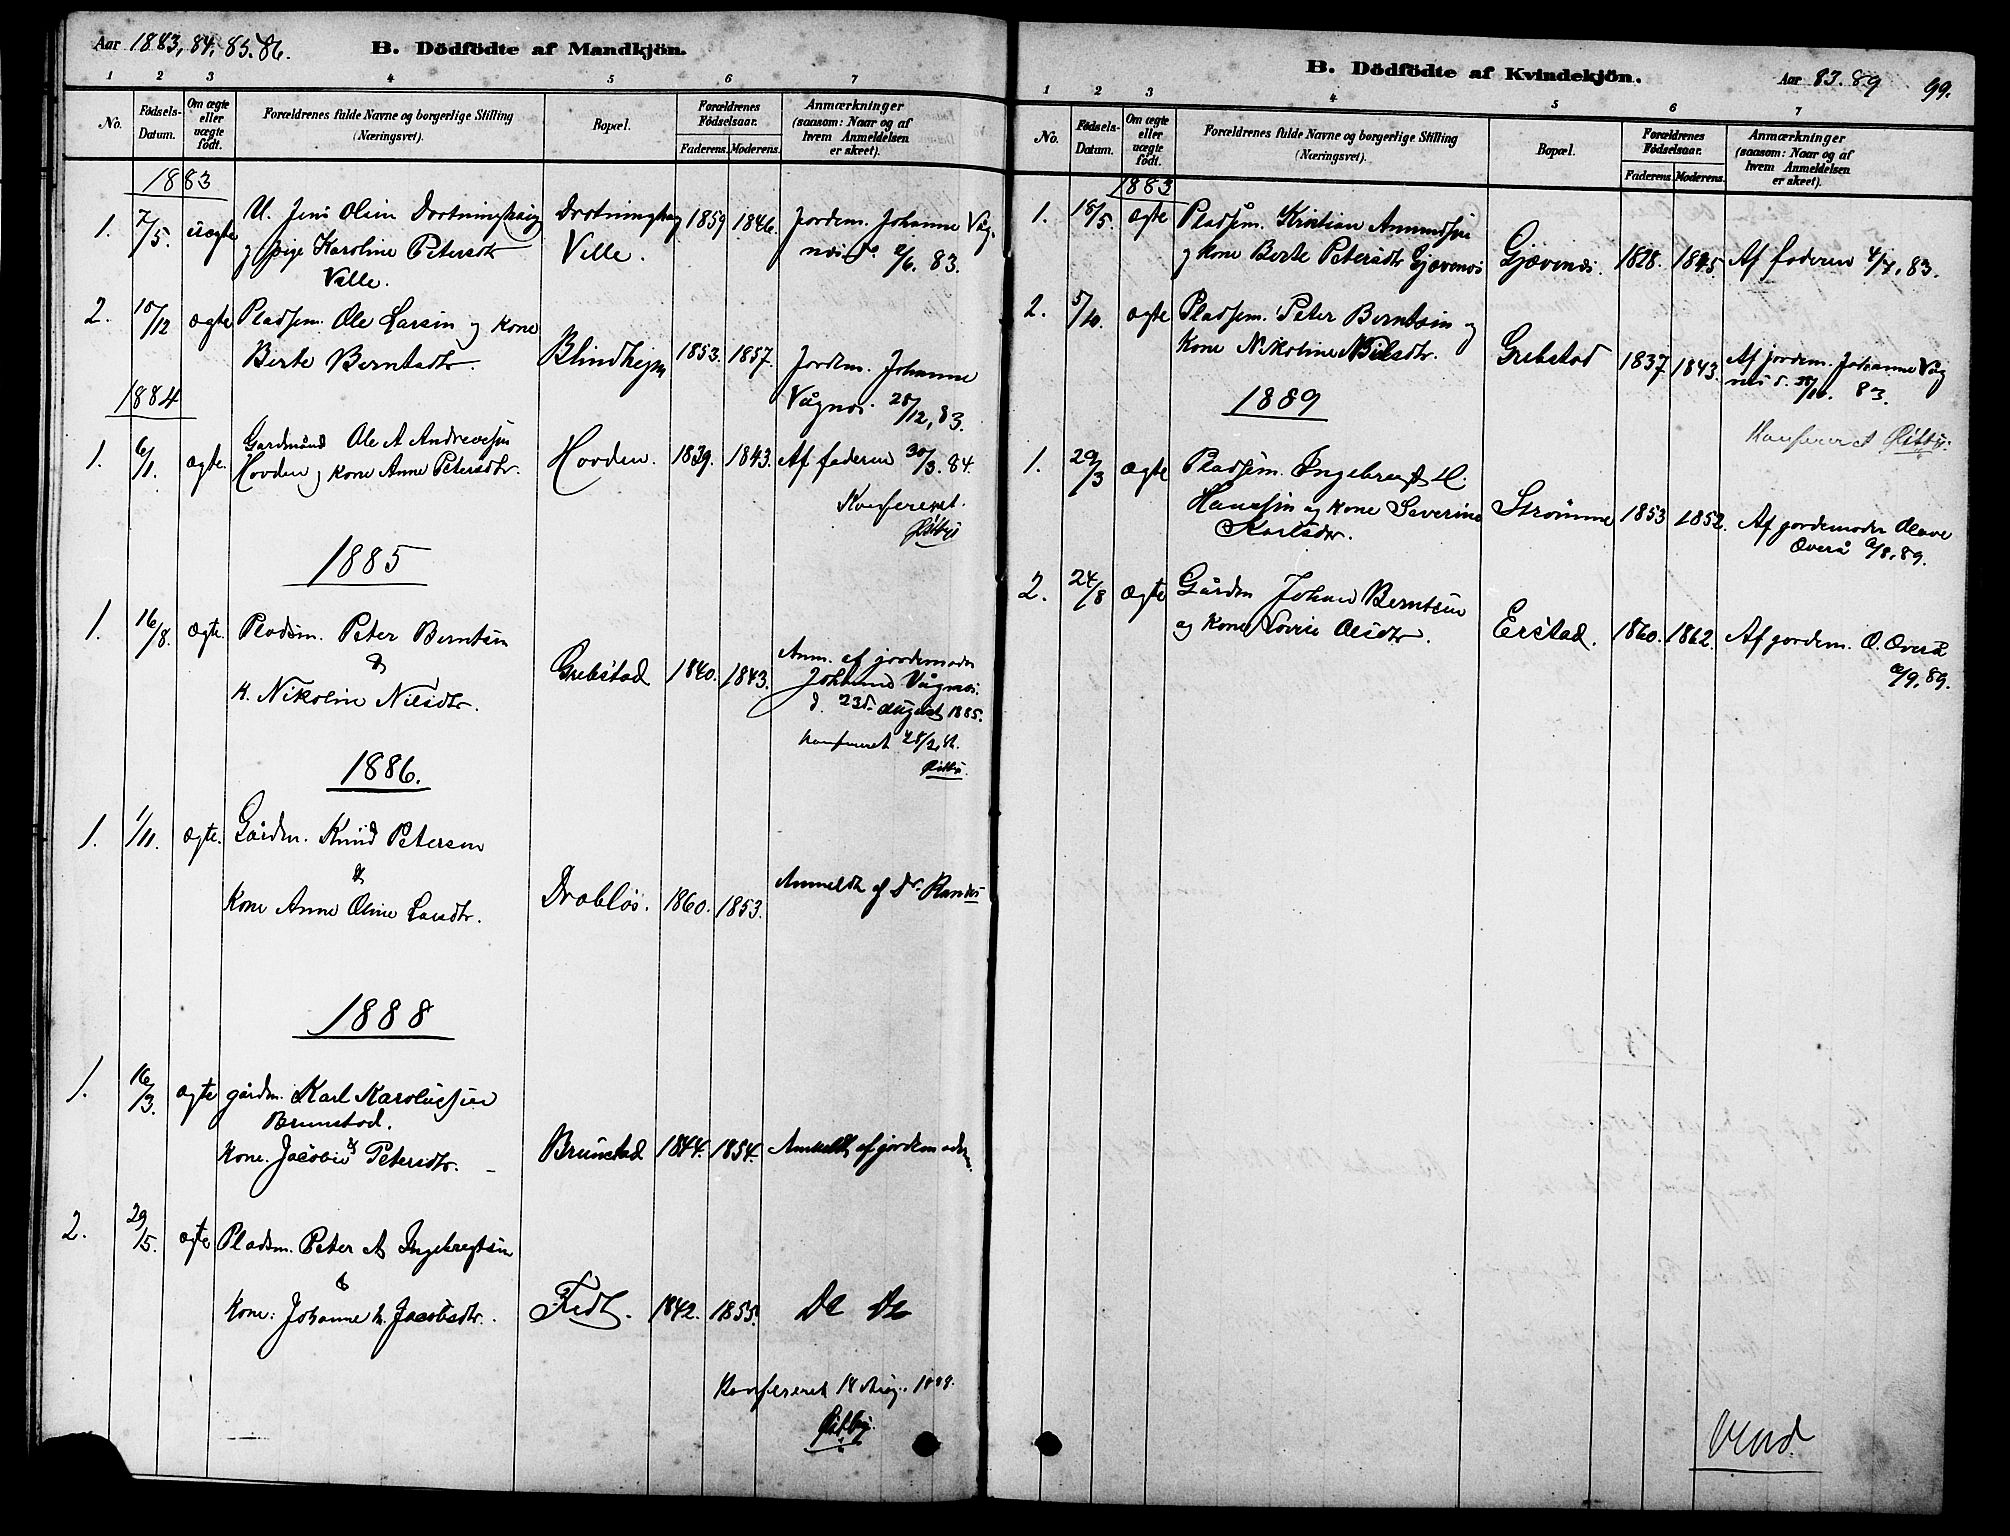 Aar 1883, 84. 85. 86.
B. Dödfödte af Mandkjön.
1 2 3 4 5 6 7
No.
Födsels-
Datum.
Om ægte
eller
uægte
födt.
Forældrenes fulde Navne og borgerlige Stilling
(Næringsvei).
Bopæl.
Forældrenes
Födselsaar.
Faderens. Moderens.
Anmærkninger
(saasom: Naar og af
hvem Anmeldelsen
er skeet).
1883
1. 7/5. uægte
U. Jens Olsen Drotninghaug
og pige Karoline Petersdtr
Velle.
Drotninghaug
Velle.
1859 1846.
Jordem. Johanne Våg-
nes 2/6. 83.
2. 10/12 ægte
Pladsem. Ole Larsen og kone
Berte Berntsdtr.
Blindhejm 1853. 1857.
Jordem. Johanne
Vågnes. 28/12, 83.
1884
1. 6/1. ægte.
Gardmand Ole A Andreassen
Hovden og kone Anne Petersdtr.
Hovden. 1839. 1843. Af faderen 30/3. 84.
Konfereret.
1885
1. 16/8. ægte.
Pladsm. Peter Berntsen
&
K. Nikoline Nilsdtr.
Grebstad 1840. 1843.
Anm. af jordemoder
Johanne Vågnes.
d. 23de August 1885.
Konfereret
1886.
1. 1/11. ægte.
Gårdm. Knud Petersen
&
Kone Anne Oline Larsdtr.
Drabløs. 1860. 1853.
Anmeldt af Dr.
1888
1. 16/3. ægte
gårdm. Karl Karolussen
Brunstad.
&
Kone. Jacobie Petersdtr.
Brunstad 1844. 1854. Anmeldt af jordemoder.
2. 29/5. ægte
Pladsm. Peter A Ingebregtsen
&
Kone: Johanne M. Jacobsdtr.
Fedt. 1842. 1855. Do Do
Konfereret 18 Aug. 1889.
B. Dödfödte af Kvindekjön.
Aar 83. 89
99.
1 2 3 4 5 6 7
No.
Födsels-
Datum.
Om ægte
eller
uægte
födt.
Forældrenes fulde Navne og borgerlige Stilling
(Næringsvei).
Bopæl.
Forældrenes
Födselsaar.
Faderens. Moderens.
Anmærkninger
(saasom: Naar og af
hvem Anmeldelsen
er skeet).
1883
1. 18/5. ægte
Pladsem. Kristian Amundsen
og kone Berte Petersdtr Gjævenes
Gjævenes. 1828. 1845. Af faderen 4/7. 83.
2. 5/10. ægte
Pladsem. Peter Berntsen og
Kone Nikoline Nilsdtr.
Grebstad 1837 1843.
Af jordem. Johanne Våg
nes d. 28/10. 83.
Konfereret
1889
1. 29/3 ægte
Pladsem. Ingebregt H.
Hanssen og kone Severine
Karlsdtr.
Strømme 1853 1852.
Af gordemoder Olave
Overå 2/8. 89.
2. 24/8 ægte
Gårdm Johan Berntsen
og Kone Lovise Olsdtr.
Erstad. 1860. 1862.
Af gordem. O. Overå
2/9. 89.
Vend